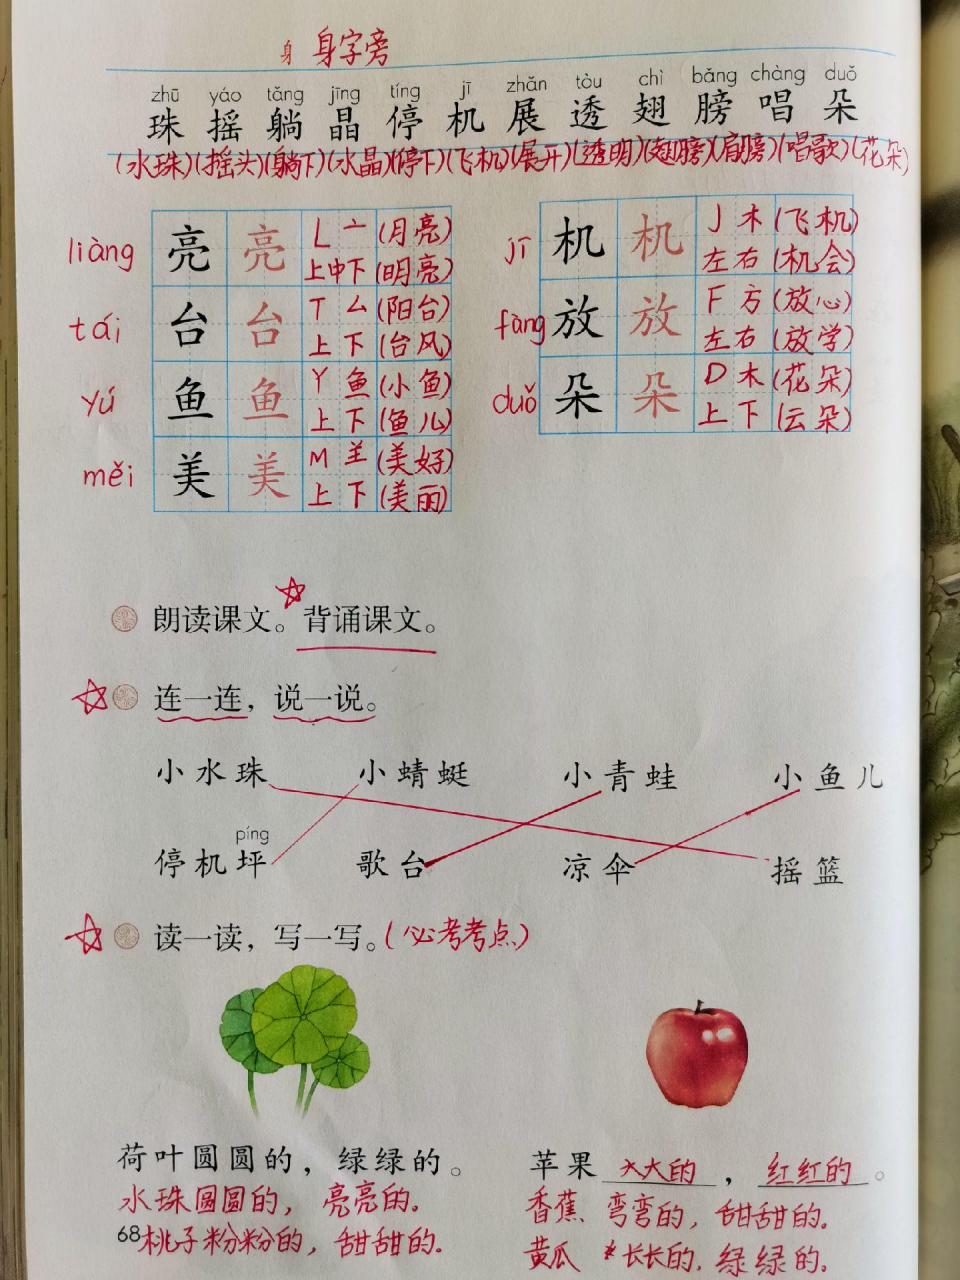 身 身字旁
zhū yáo tǎng jīng tíng jī zhǎn tòu chì bǎng chàng duǒ
珠 摇 躺 晶 停 机 展 透 翅 膀 唱 朵
(水珠)(摇头)(躺下)(水晶)(停下)(飞机)(展开)(透明)(翅膀)(肩膀)(唱歌)(花朵)
liàng 亮 亮 L 亠 (月亮)
上中下 (明亮)
tái 台 台 T 厶 (阳台)
上 下 (台风)
yú 鱼 鱼 Y 鱼 (小鱼)
上 下 (鱼儿)
měi 美 美 M 𦍌 (美好)
上 下 (美丽)
jī 机 机 J 木 (飞机)
左 右 (机会)
fàng 放 放 F 方 (放心)
左 右 (放学)
duǒ 朵 朵 D 木 (花朵)
上 下 (云朵)
朗读课文。背诵课文。
连一连，说一说。
小水珠 小蜻蜓 小青蛙 小鱼儿
píng
停机坪 歌台 凉伞 摇篮
读一读，写一写。(必考考点)
荷叶圆圆的，绿绿的。
水珠圆圆的，亮亮的.
68 桃子粉粉的，甜甜的.
苹果 大大的 ， 红红的 。
香蕉 弯弯的，甜甜的.
黄瓜 长长的，绿绿的.